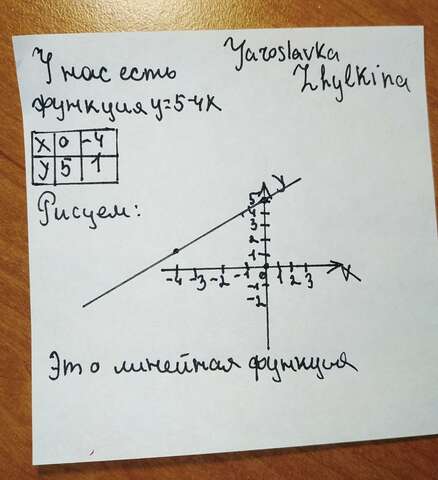 У нас есть
Yaroslavka
Zhylkina
функция y=5-4x
X 0 -4
y 5 1
Рисуем:
y
5
4
3
2
1
-4 -3 -2 -1 0 1 2 3 X
-1
-2
Это линейная функция